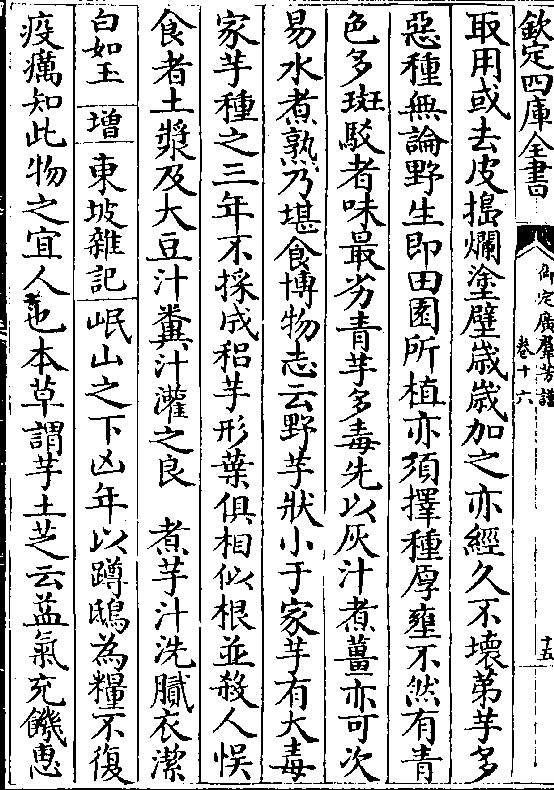 欽定四庫全書
御定廣羣芳譜
卷十六
十五
取用或去皮搗爛塗壁嵗嵗加之亦經久不壞第芋多
惡種無論野生即田園所植亦須擇種厚壅不然有青
色多斑駁者味最劣青芋多毒先以灰汁煮薑亦可次
易水煮熟乃堪食博物志云野芋狀小于家芋有大毒
家芋種之三年不採成梠芋形葉俱相似根並殺人悞
食者土漿及大豆汁糞汁灌之良　煮芋汁洗膩衣潔
白如玉　增　東坡雜記　岷山之下凶年以蹲鴟為糧不復
疫癘知此物之宜人也本草謂芋土芝云益氣充饑惠